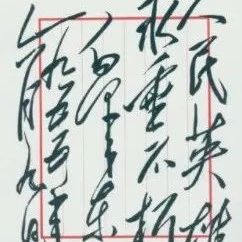 人民英雄
永垂不朽
毛泽东
一九五五年
六月九日